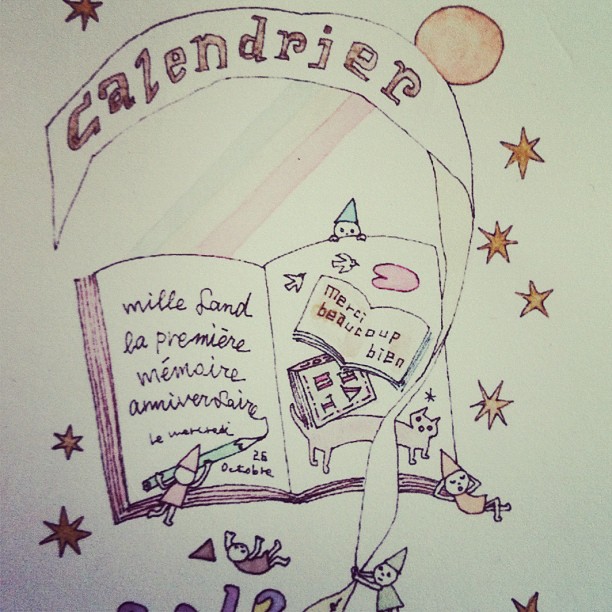 calendrier
mille Land
la première
mémoire
anniversaire
le mercredi
26
octobre
merci
beaucoup
bien